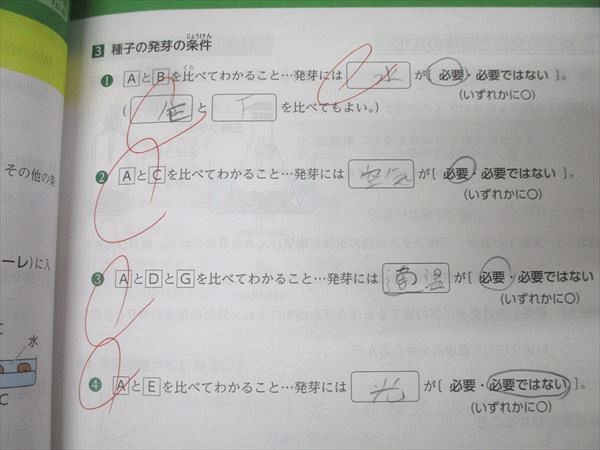 3 種子の発芽の条件
じょうけん
❶ AとBを比べてわかること…発芽には 水 が〔 必要・必要ではない 〕。
くら
(いずれかに○)
( E と F を比べてもよい。)
❷ AとCを比べてわかること…発芽には 空気 が〔 必要・必要ではない 〕。
(いずれかに○)
その他の条
❸ AとDとGを比べてわかること…発芽には 適温 が〔 必要・必要ではない 〕。
(いずれかに○)
ーレ)に入
水
❹ AとEを比べてわかること…発芽には 光 が〔 必要・必要ではない 〕。
(いずれかに○)
C